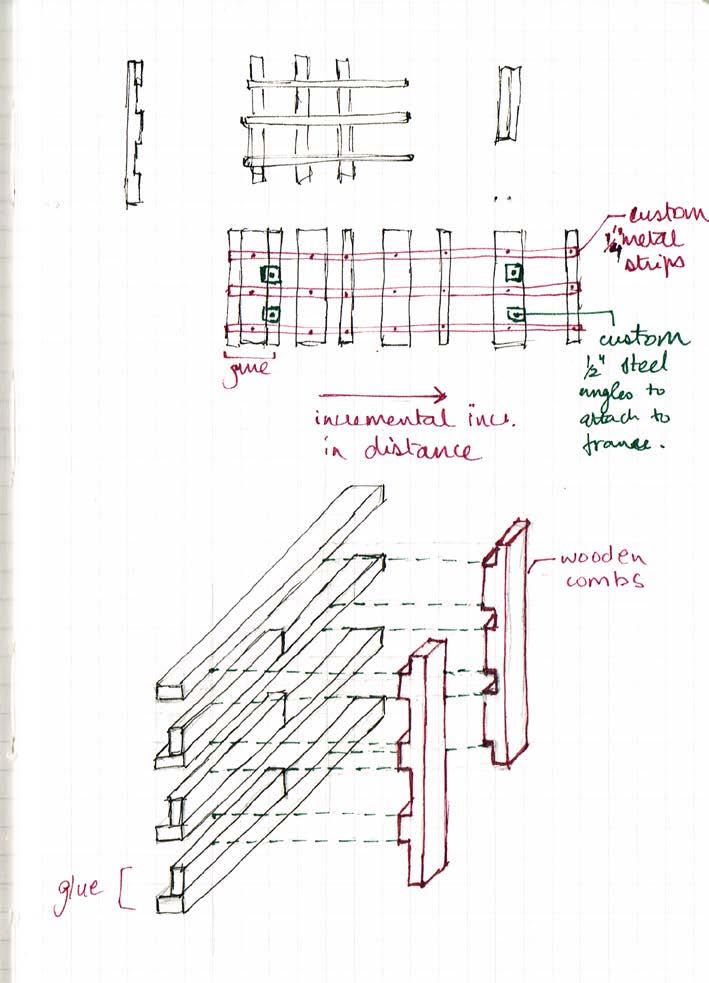 custom
1/4" metal
strips
custom
1/2" steel
angles to
attach to
frame.
glue
incremental incr.
in distance
wooden
combs
glue